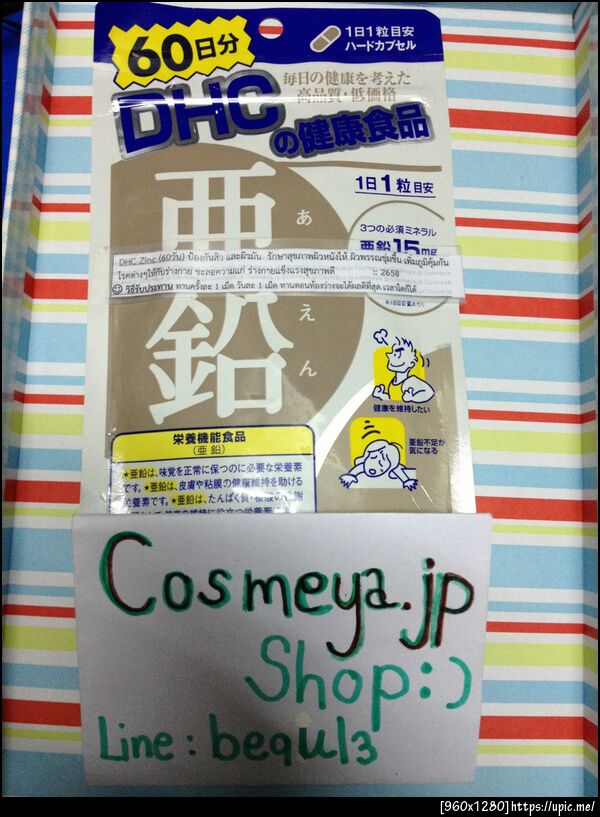 60日分
1日1粒目安
ハードカプセル
毎日の健康を考えた
高品質・低価格
DHC
の健康食品
1日1粒目安
3つの必須ミネラル
亜鉛15mg
亜鉛
あえん
DHC Zinc (60วัน) ป้องกันสิว และผิวมัน รักษาสุขภาพผิวหนังให้ ผิวพรรณชุ่มชื้น เพิ่มภูมิคุ้มกัน
โรคต่างๆให้กับร่างกาย ชะลอความแก่ ร่างกายแข็งแรงสุขภาพดี :: 2658
วิธีรับประทาน ทานครั้งละ 1 เม็ด วันละ 1 เม็ด ทานตอนท้องว่างจะได้ผลดีที่สุด เวลาใดก็ได้
健康を維持したい
亜鉛不足が
気になる
栄養機能食品
(亜鉛)
★亜鉛は、味覚を正常に保つのに必要な栄養素
です。★亜鉛は、皮膚や粘膜の健康維持を助ける
栄養素です。★亜鉛は、たんぱく質・核酸の代謝
Cosmeya.jp
Shop:)
Line : bequl3
[960x1280]https://upic.me/